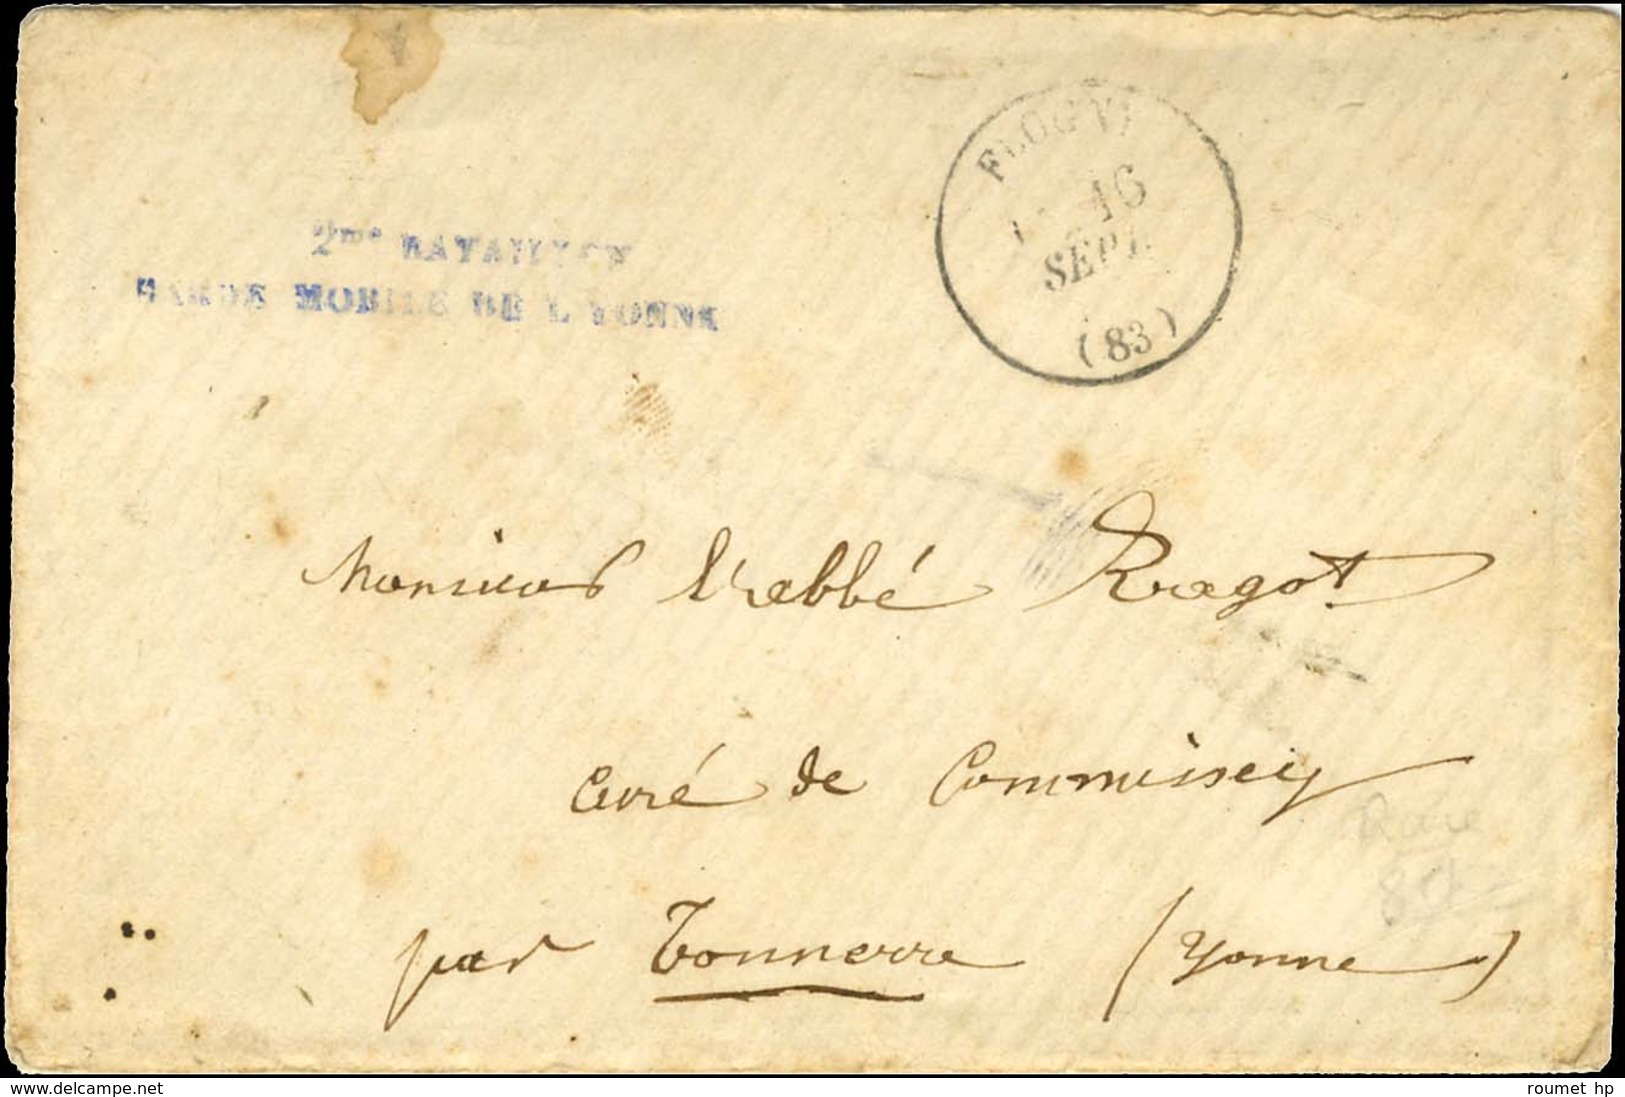 2me BATAILLON
GARDE MOBILE DE L'YONNE
FLOGNY
16
SEPT.
(83)
Monsieur l'abbé Ragot
Curé de Commissey
Rare
80
par Tonnerre (Yonne)
www.delcampe.net
roumet hp